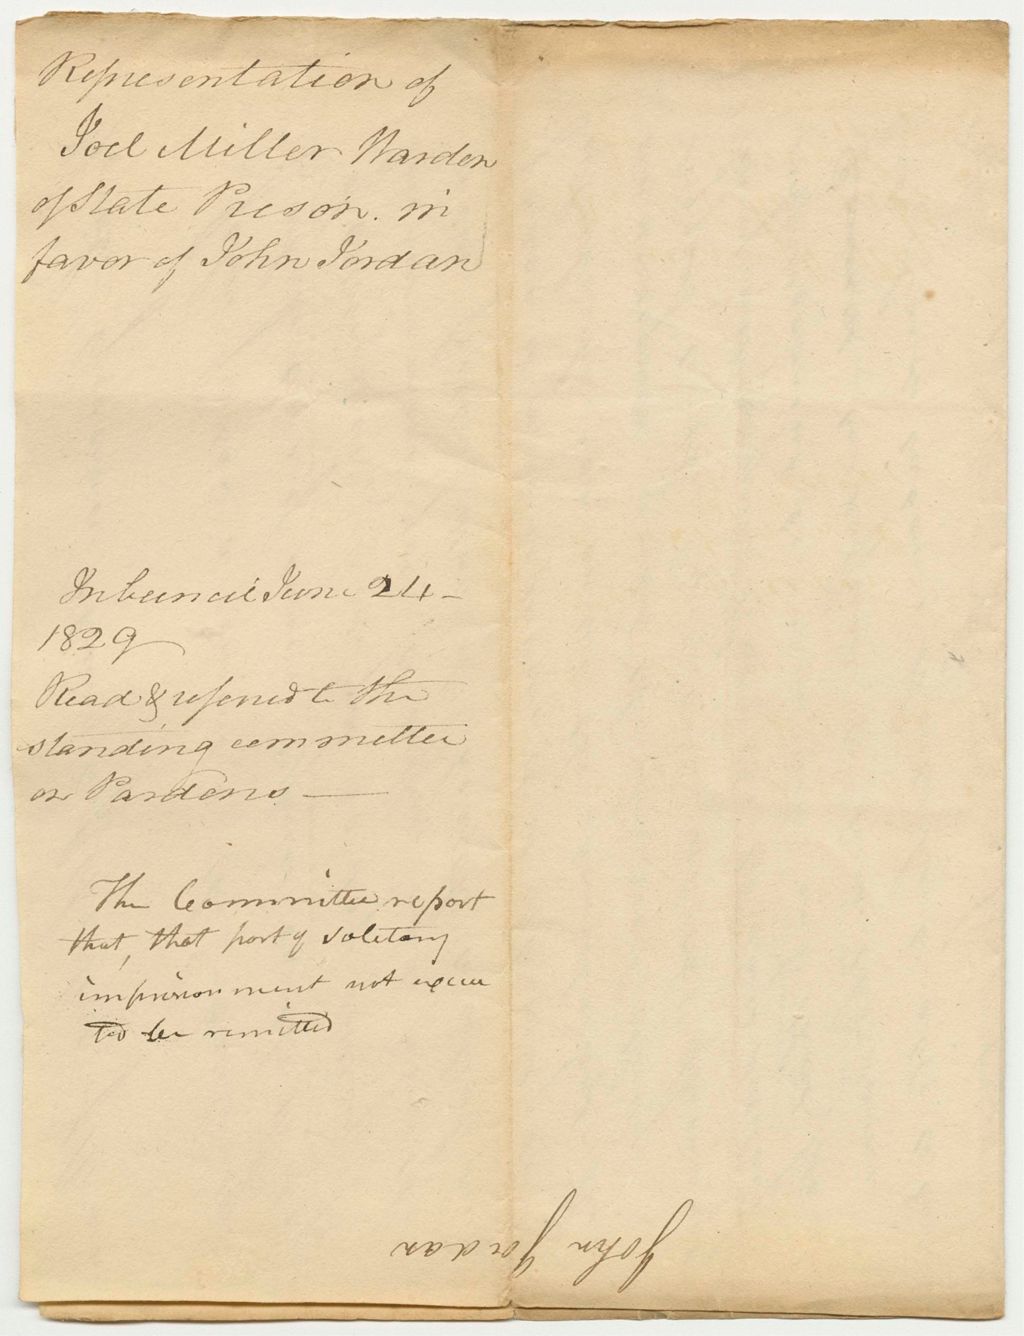 Representation of
Joel Miller Warden
of State Preson. in
favor of John Jordan
In Council June 24
1829
Read & refered to the
standing committee
on Pardons
The Committee report
that, that part of soletary
imprisonment not execu
ted be remitted
John Jordan